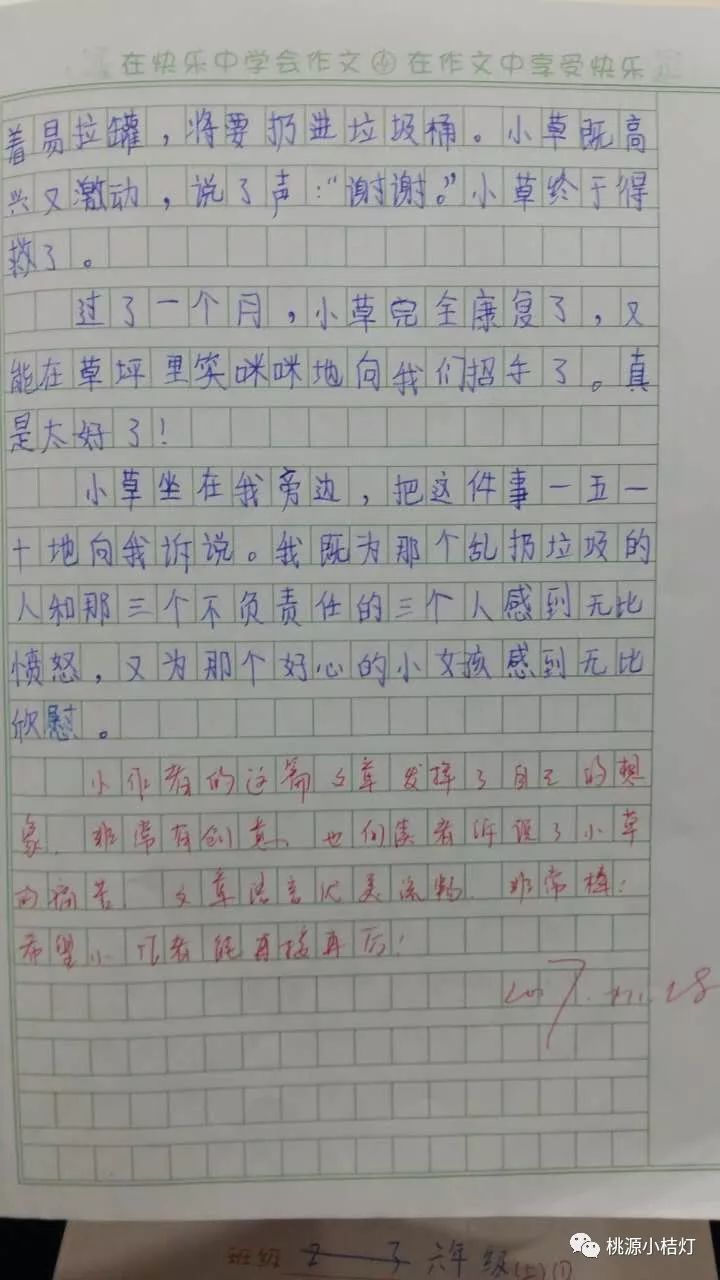 在快乐中学会作文④在作文中享受快乐
着易拉罐，将要扔进垃圾桶。小草既高
兴又激动，说了声：“谢谢。”小草终于得
救了。
过了一个月，小草完全康复了，又
能在草坪里笑咪咪地向我们招手了。真
是太好了！
小草坐在我旁边，把这件事一五一
十地向我诉说。我既为那个乱扔垃圾的
人和那三个不负责任的三个人感到无比
愤怒，又为那个好心的小女孩感到无比
欣慰。
小作者的这篇文章发挥了自己的想
象，非常有创意，也向读者诉说了小草
的痛苦，文章语言优美流畅，非常棒！
希望小作者能再接再厉！
班级 六年级(上)
桃源小桔灯